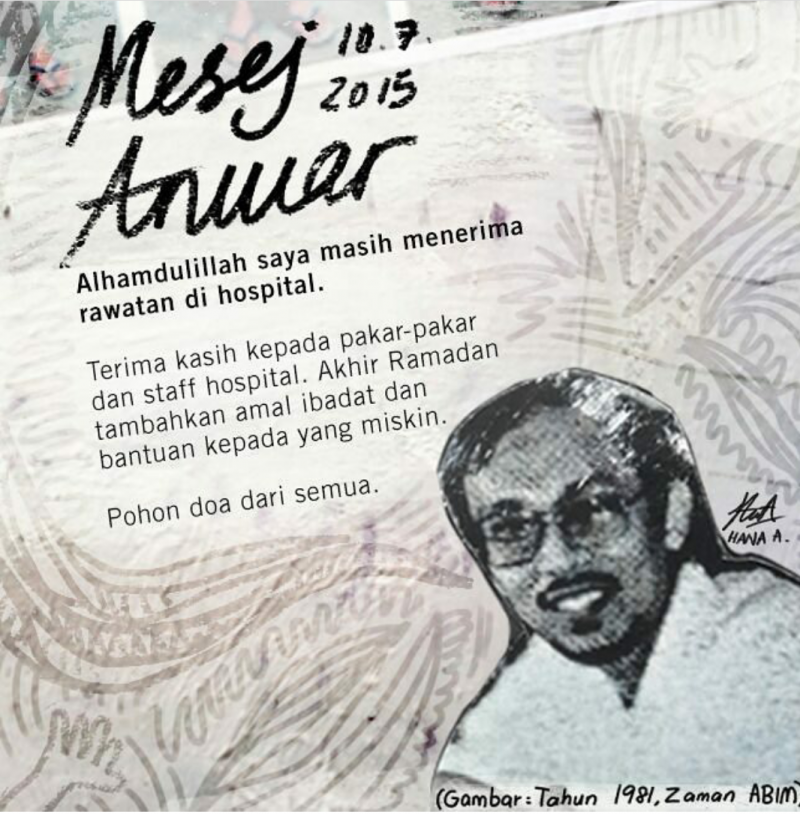 Mesej 10.7.
2015
Anwar
Alhamdulillah saya masih menerima
rawatan di hospital.
Terima kasih kepada pakar-pakar
dan staff hospital. Akhir Ramadan
tambahkan amal ibadat dan
bantuan kepada yang miskin.
Pohon doa dari semua.
HANA A.
(Gambar: Tahun 1981, Zaman ABIM)